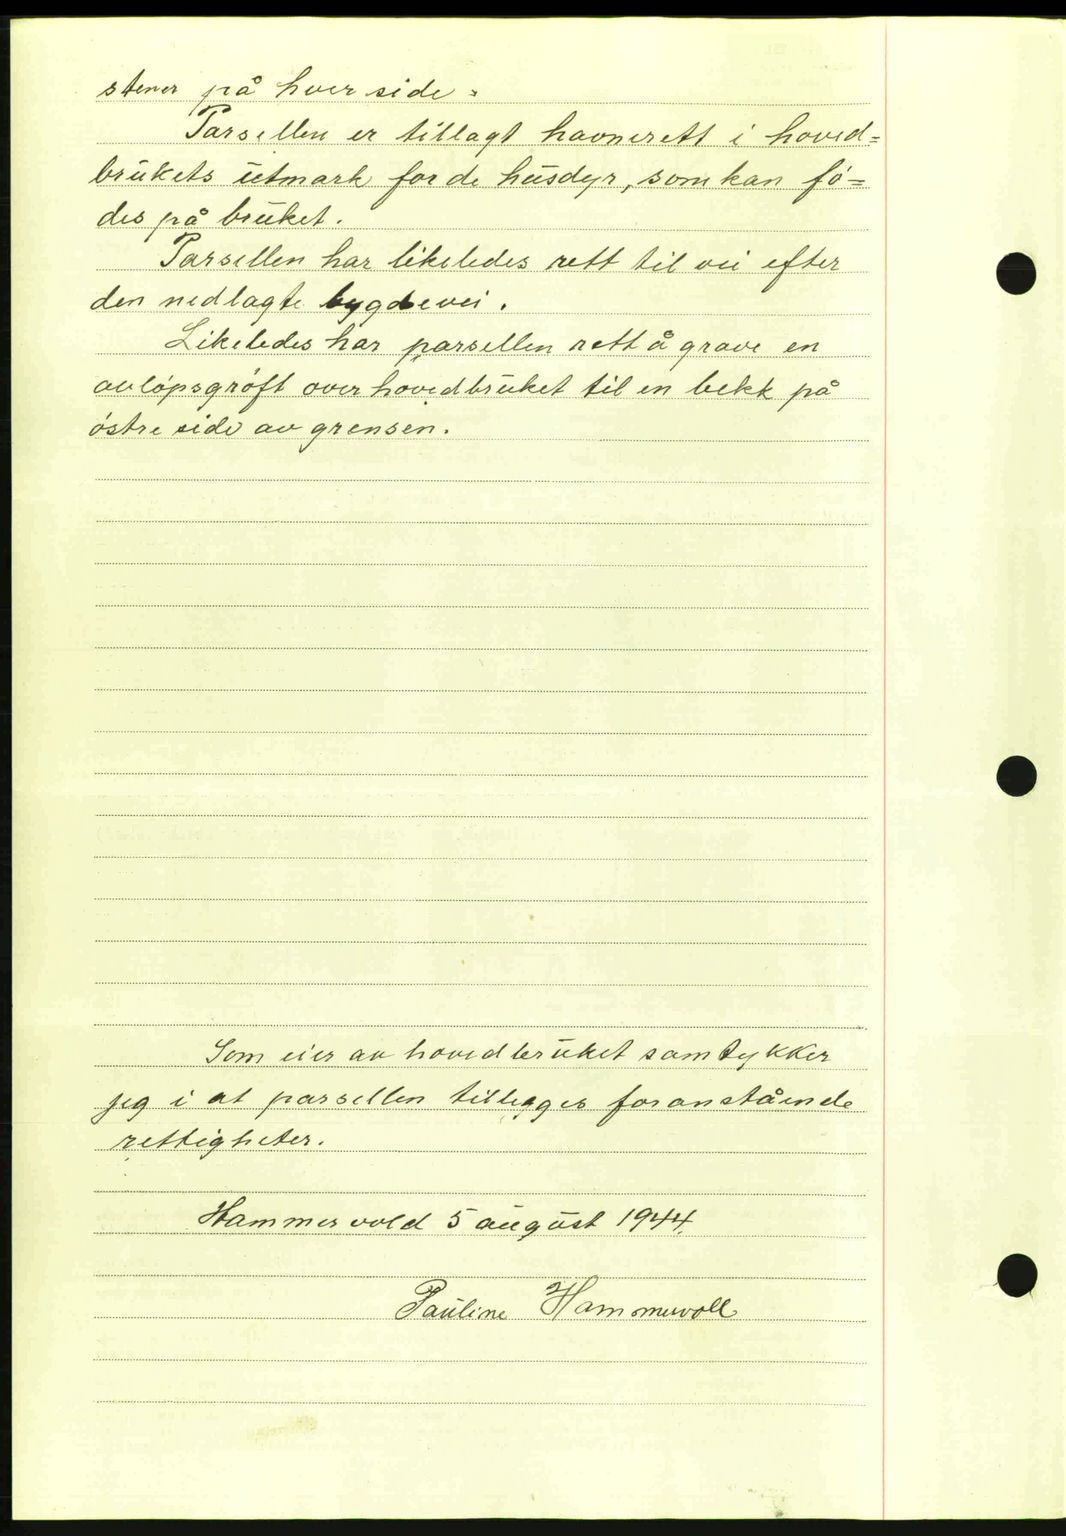 stener på hver side.
Parsellen er tillagt havnerett i hoved=
brukets utmark for de husdyr, som kan fø=
des på bruket.
Parsellen har likeledes rett til vei efter
den nedlagte bygdevei.
Likeledes har parsellen rett å grave en
avløpsgrøft over hovedbruket til en bekk på
østre side av grensen.
Som eier av hovedbruket samtykker
jeg i at parsellen tillegges foranstående
rettigheter.
Hammervold 5 august 1944.
Pauline Hammervoll